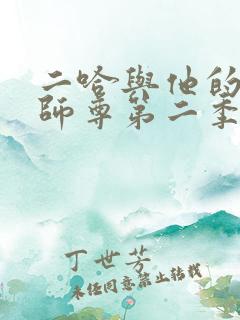 二哈與他的
師尊第二季
丁世芳
未经同意禁止转载